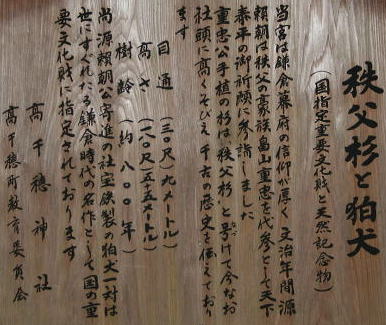 秩父杉と狛犬
(国指定重要文化財と天然記念物)
当宮は鎌倉幕府の信仰が厚く 文治年間源
頼朝は秩父の豪族畠山重忠を代参として天下
泰平の御祈願に参詣しました
重忠公手植の杉は"秩父杉"と号けて今なお
社頭に高くそびえ 千古の歴史を伝えており
ます
目通 (三〇尺)九メートル
高さ (一八〇尺)五五メートル
樹齢 (約八〇〇年)
尚源頼朝公寄進の社宝鉄製の狛犬一対は
世にすぐれたる鎌倉時代の名作として国の重
要文化財に指定されております
高千穂神社
高千穂町教育委員会